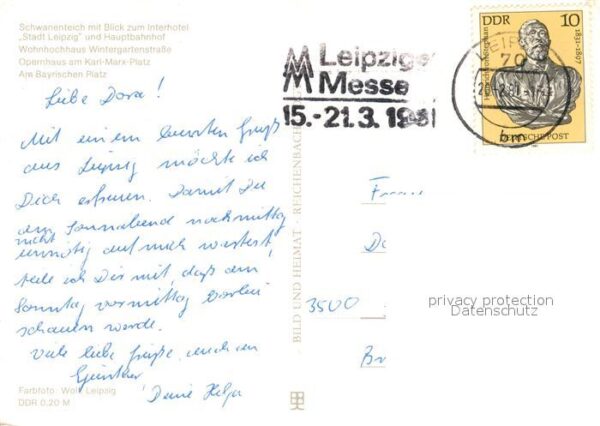 Schwanenteich mit Blick zum Interhotel
„Stadt Leipzig" und Hauptbahnhof
Wohnhochhaus Wintergartenstraße
Opernhaus am Karl-Marx-Platz
Am Bayrischen Platz
Liebe Dora!
Mit einem bunten Gruß
aus Leipzig möchte ich
Dich erfreuen. Damit Du
am Sonnabend nachmittag
nicht
unnötig auf mich wartest,
teile ich Dir mit, daß am
Sonntag vormittag vorbei
schauen werde.
Viele liebe Grüße, auch an
Günther,
Deine Helga
Farbfoto: Wolf, Leipzig
DDR 0,20 M
BILD UND HEIMAT · REICHENBACH
MM Leipziger
Messe
15.-21.3. 1981
LEIPZIG
70
bm
DDR 10
Heinrich von Stephan
1831-1897
DEUTSCHE POST
Frau
Do
3500
Br
privacy protection
Datenschutz